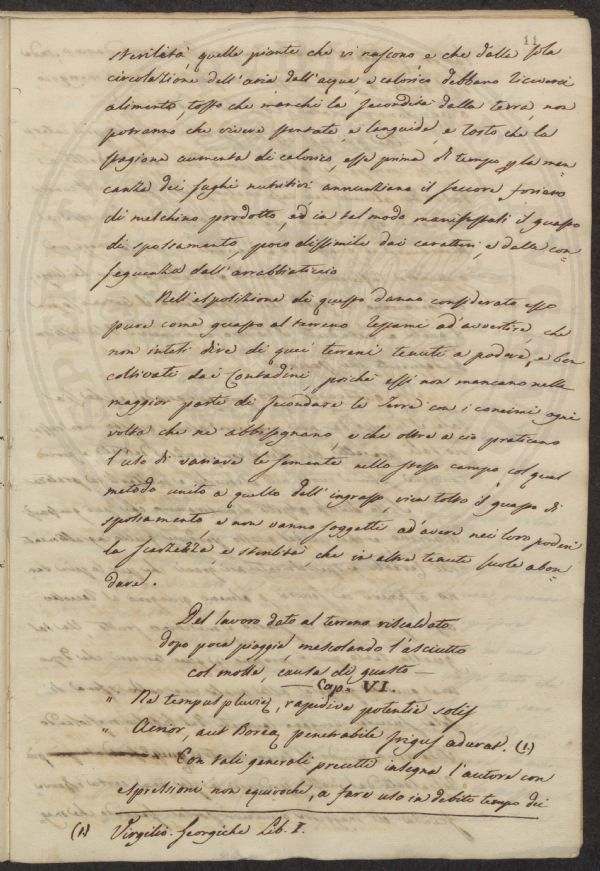 11
sterilità, quelle piante che vi nascono e che dalla sola
circolazione dell'aria dall'acqua, e calorico debbano riceversi
alimento, tosto che manchi la fecondità dalla terra, non
potranno che vivere stentate, e languide, e tosto che la
stagione aumenta di calorico, esse prima di tempo p la man-
canza dei sughi nutritivi annunziano il seccore foriero
di meschino prodotto, ed in tal modo manifestasi il guasto
di spossamento, poco dissimile dai caratteri, e dalle con=
seguenze dall'arrabbiaticcio
Nell'esposizione di questo danno considerato esso
pure come guasto al terreno restami ad'avvertire, che
non intesi dire di quei terreni tenuti a podere, e ben
coltivati dai Contadini, poichè essi non mancano nella
maggior parte di fecondare le Terre con i concimi ogni
volta che ne abbisognano, e che oltre a ciò praticano
l'uso di variare le semente nello stesso campo col qual
metodo unito a quello dell'ingrasso, vien tolto il guasto di
spossamento, e non vanno soggetti ad'avere nei loro poderi
la scarzezza, e sterilità, che in altre tenute suole abon-
dare.
Del lavoro dato al terreno riscaldato
dopo poca pioggia mescolando l'asciutto
col molle, causa di guasto —
Cap. VI.
" Ne tenues pluviæ, rapidive potentia solis
" Acrior, aut Boreæ penetrabile frigus adurat. (1.)
Con tali generali precetti insegna l'autore con
espressioni non equivoche, a fare uso in debito tempo dei
(1) Virgilio. Georgiche Lib. I.